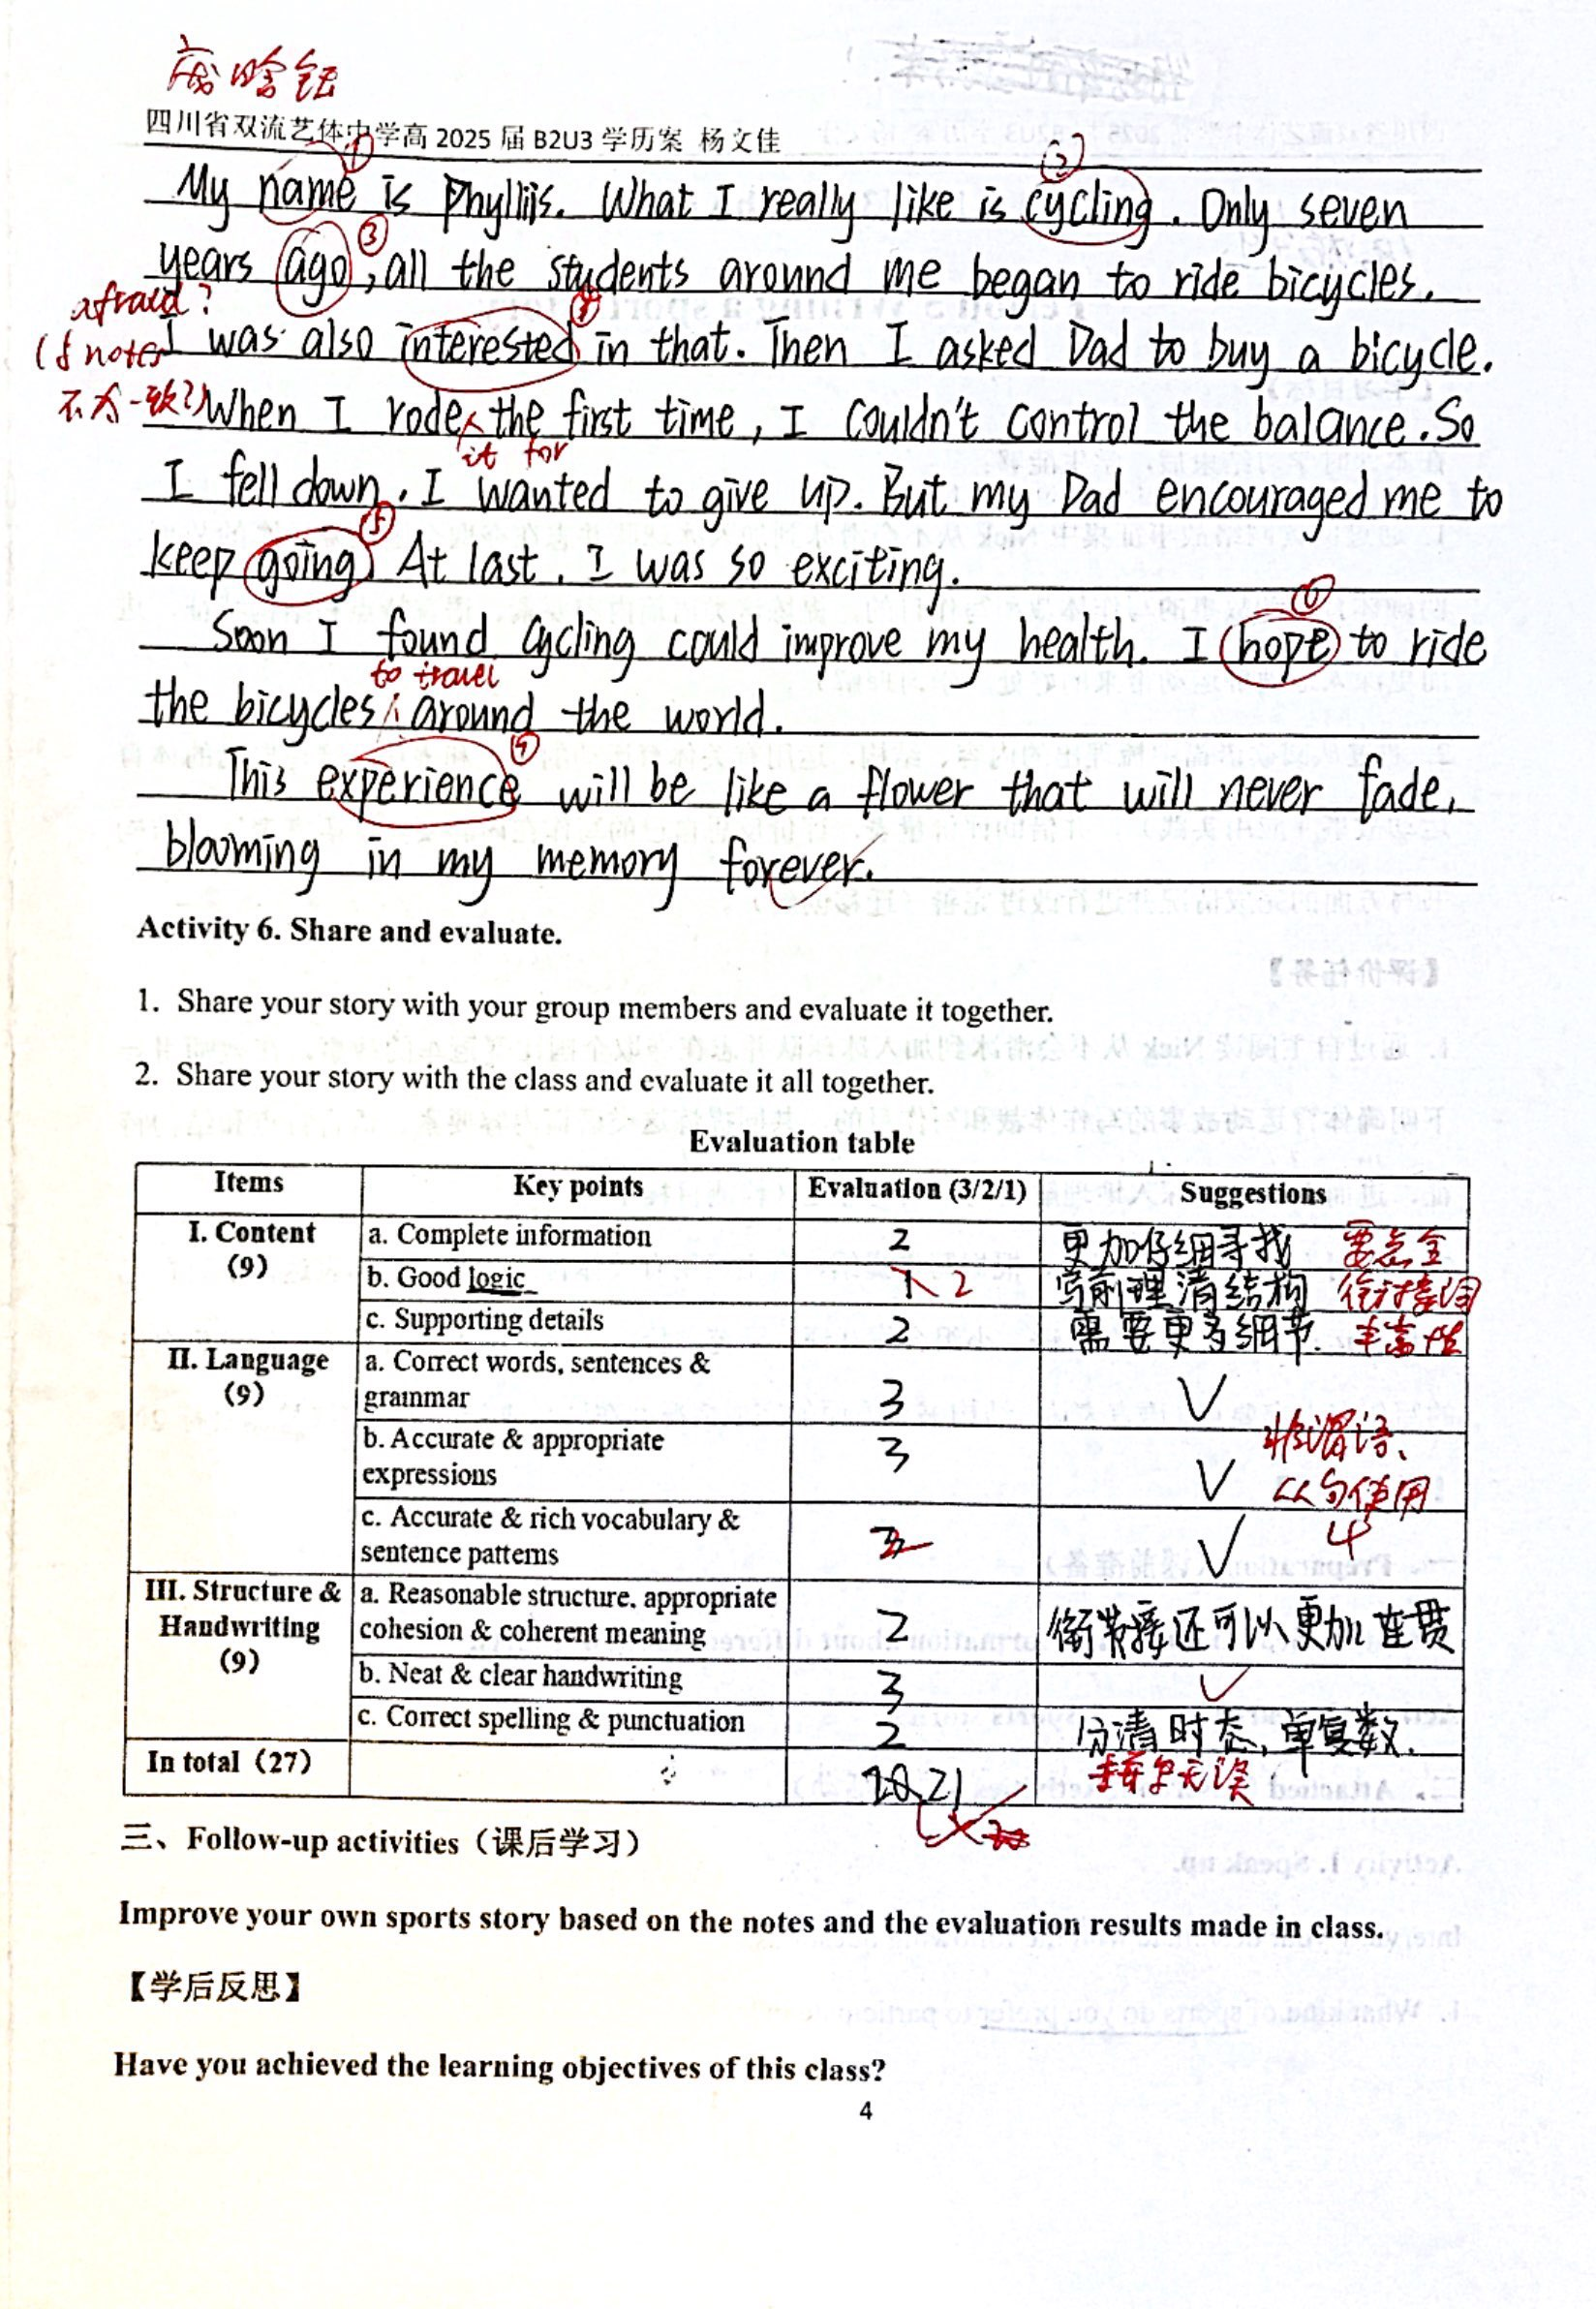 四川省双流艺体中学高 2025 届 B2U3 学历案 杨文佳
①
②
My name is Phyllis. What I really like is cycling. Only seven
③
years ago, all the students around me began to ride bicycles.
afraid?
④
I was also interested in that. Then I asked Dad to buy a bicycle.
(与 notes
不太一致?)
When I rode the first time, I couldn't control the balance. So
it for
I fell down. I wanted to give up. But my Dad encouraged me to
⑤
keep going. At last, I was so exciting.
⑥
Soon I found cycling could improve my health. I hope to ride
to travel
the bicycles around the world.
This experience will be like a flower that will never fade,
blooming in my memory forever.
Activity 6. Share and evaluate.
1. Share your story with your group members and evaluate it together.
2. Share your story with the class and evaluate it all together.
Evaluation table
Items Key points Evaluation (3/2/1) Suggestions
I. Content (9)
a. Complete information 2 更加仔细寻找 要点全
b. Good logic 1 2 写前理清结构 衔接词
c. Supporting details 2 需要更多细节. 丰富性
II. Language (9)
a. Correct words, sentences & grammar 3 ✓
b. Accurate & appropriate expressions 3 ✓ 非谓语、
从句使用
c. Accurate & rich vocabulary & sentence patterns ✓
III. Structure & Handwriting (9)
a. Reasonable structure, appropriate cohesion & coherent meaning 2 衔接还可以更加连贯
b. Neat & clear handwriting 3 ✓
c. Correct spelling & punctuation 2 分清时态,单复数.
拼写无误
In total（27） 21
三、Follow-up activities（课后学习）
Improve your own sports story based on the notes and the evaluation results made in class.
【学后反思】
Have you achieved the learning objectives of this class?
4